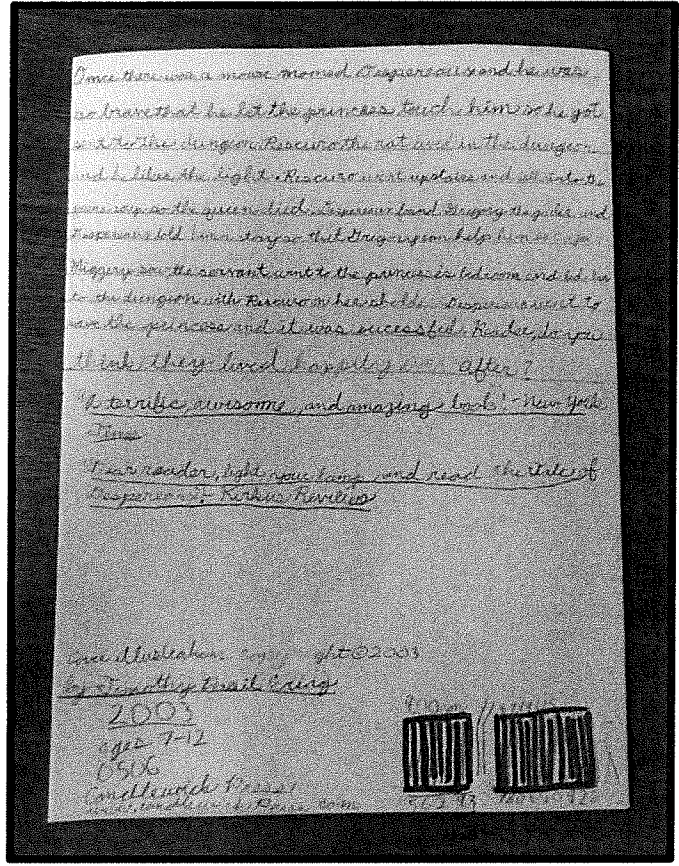 Once there was a mouse momed Despereaux and he was
so brave that he let the princess touch him so he got
sent to the dungeon. Roscuro the rat and in the dungeon
and he likes the light. Roscuro went upstairs and fell into the
soup so the queen died. Despereaux found Gregory the jailer and
Despereaux told him a story so that Gregory can help him
Miggery sow the servant went to the princess's bedroom and led her
to the dungeon with Roscuro in her. Despereaux went to
save the princess and it was sucessful. Reader, do you
think they lived happily ever after?
"A terrific, awesome, and amazing book!" - New York
Times
"Dear reader, light your lamp, and read the tale of
Despereaux". - Kirkus Reviews
illustration copyright © 2003
by Timothy Basil Ering
2003
ages 7-12
0506
Candlewick Press